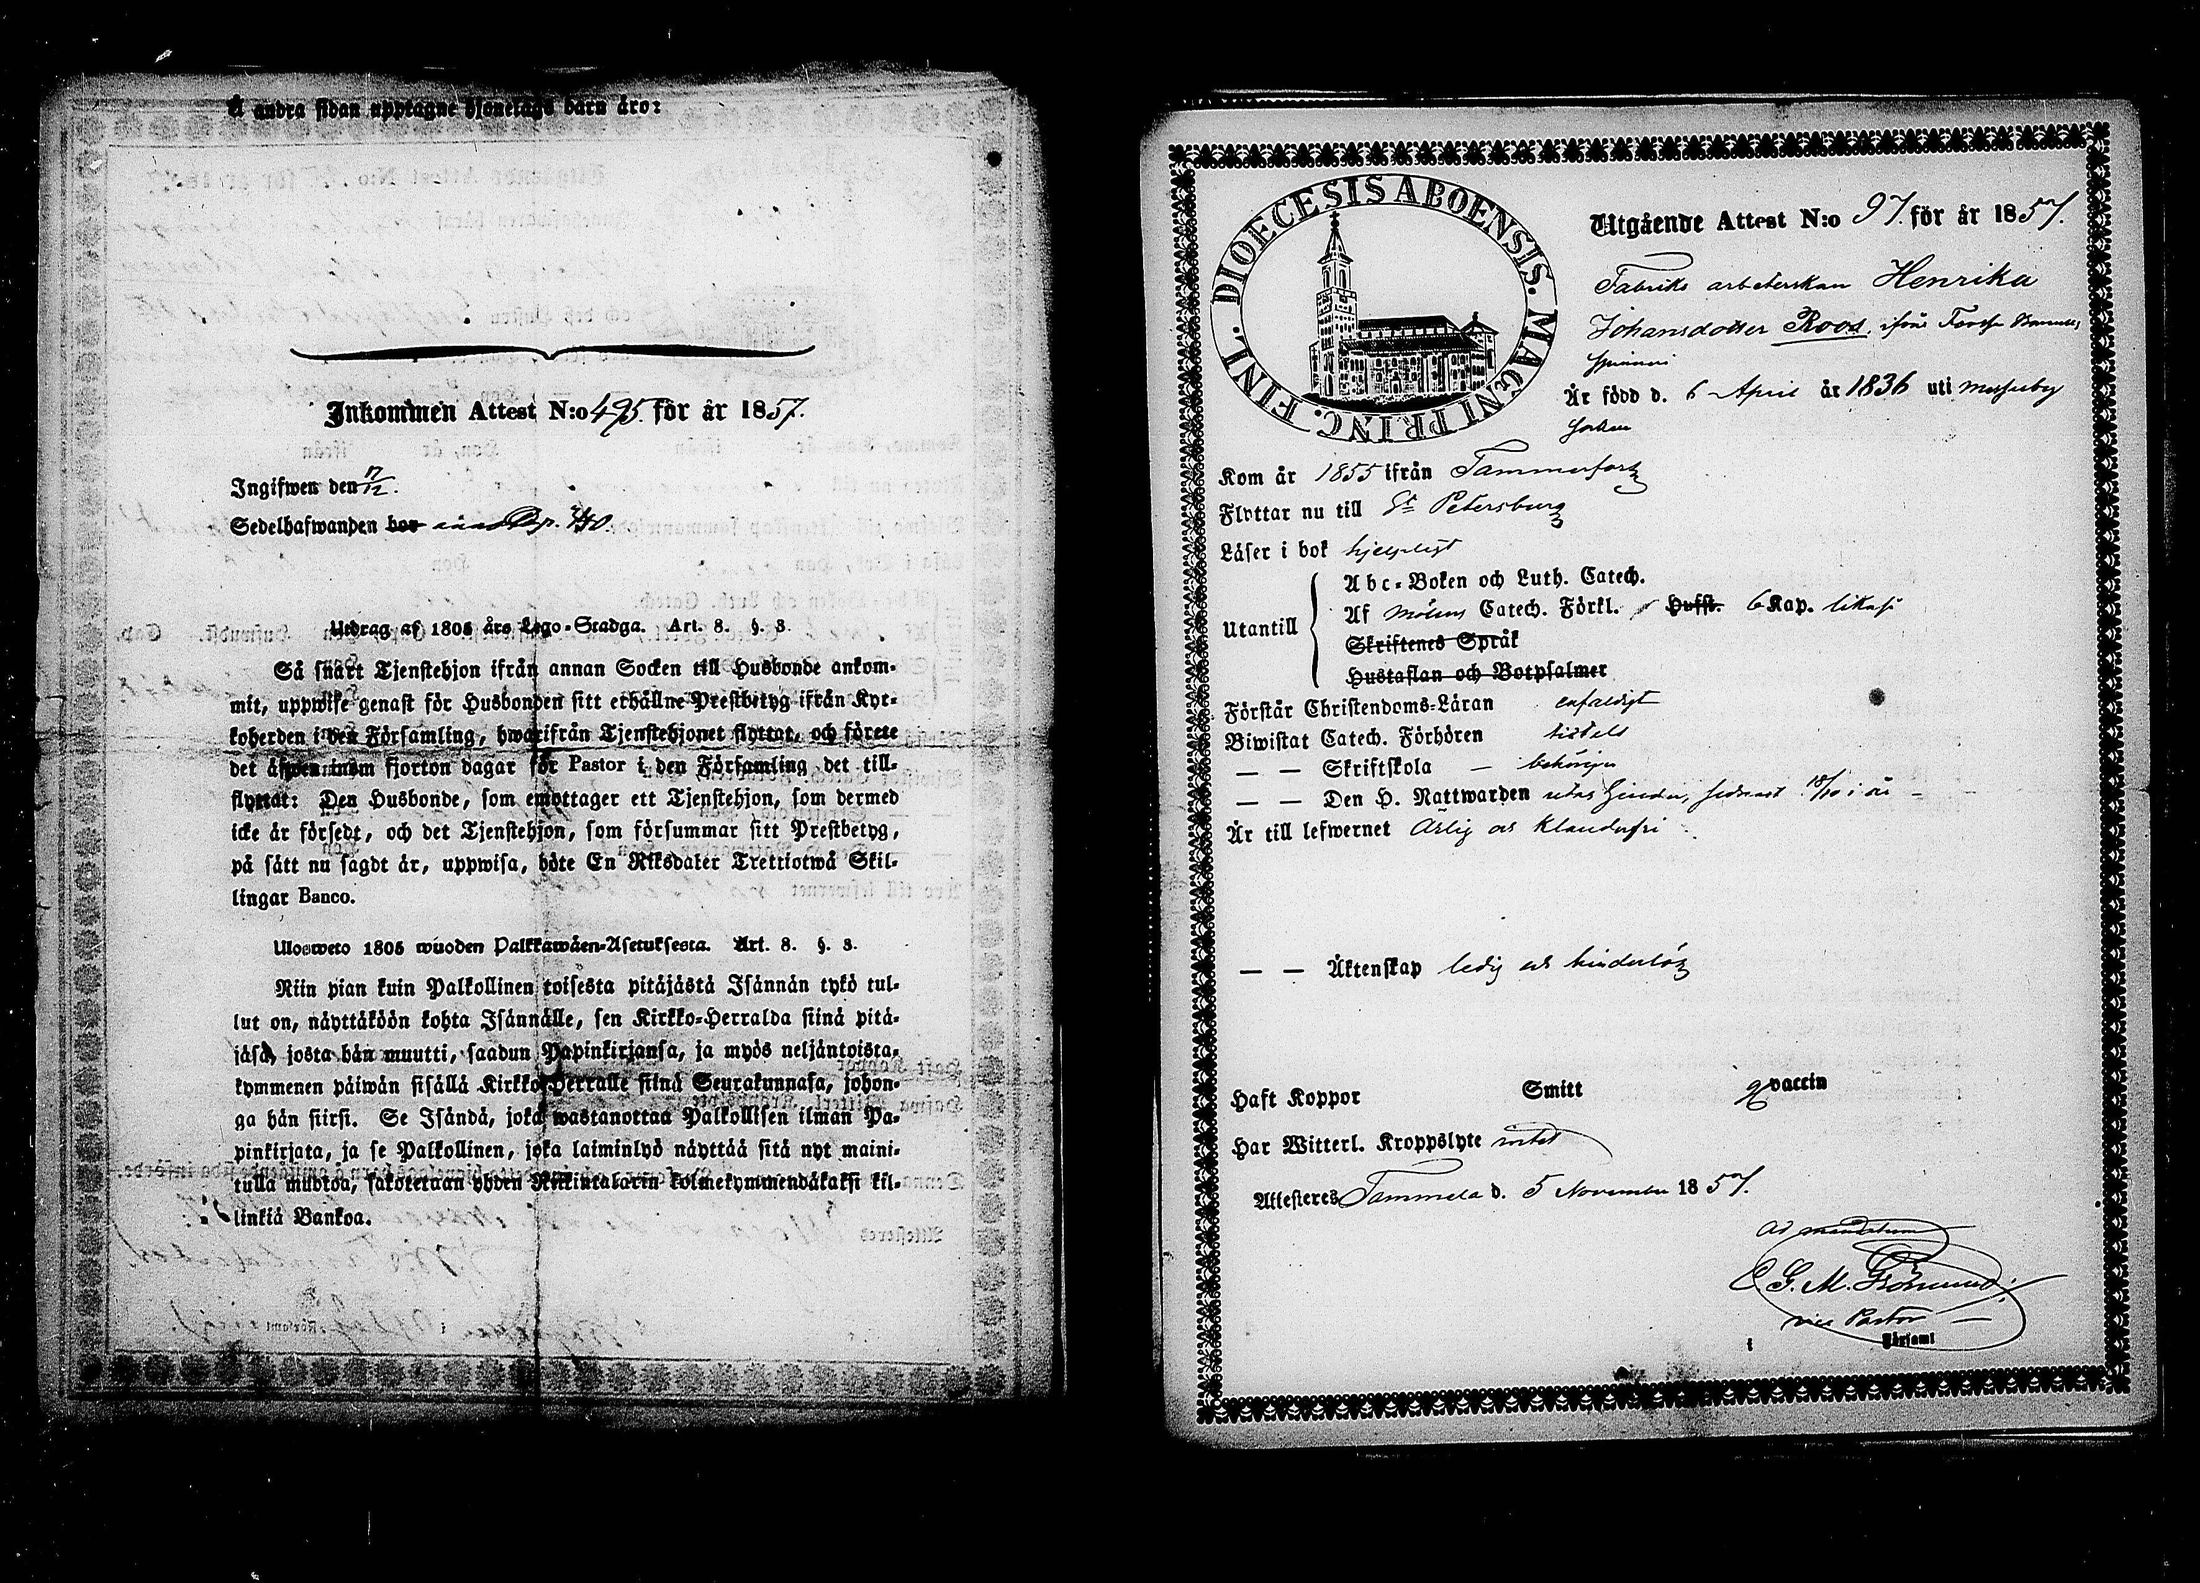 Å andra sidan upptagne hjonelags barn äro:
Inkommen Attest N:o 495. för år 1857.
Ingifwen den 17/12.
Sedelhafwanden bor
Utdrag af 1805 års Lego-Stadga. Art. 8. §. 3.
Så snärt Tjenstehjon ifrån annan Socken till Husbonde ankom-
mit, uppwise genast för Husbonden sitt erhållne Prestbetyg ifrån Kyr-
koherden i den Församling, hwarifrån Tjenstehjonet flyttat, och förete
det äfwen inom fjorton dagar för Pastor i den Församling det till-
flyttat: Den Husbonde, som emottager ett Tjenstehjon, som dermed
icke är försedt, och det Tjenstehjon, som försummar sitt Prestbetyg,
på sätt nu sagdt är, uppwisa, böte En Riksdaler Trettiotwå Skil-
lingar Banco.
Ulosweto 1805 wuoden Palkkawäen-Asetuksesta. Art. 8. §. 3.
Niin pian kuin Palkollinen toisesta pitäjästä Isännän tykö tul-
lut on, näyttäköön kohta Isännälle, sen Kirkko-Herralda siinä pitä-
jäsä, josta hän muutti, saadun Papinkirjansa, ja myös neljäntoista-
kymmenen päiwän sisällä Kirkko-Herralle siinä Seurakunnasa, johon-
ga hän siirsi. Se Isändä, joka wastanottaa Palkollisen ilman Pa-
pinkirjata, ja se Palkollinen, joka laiminlyö näyttää sitä nyt maini-
tulla muotoa, sakotetaan yhden Riikintalarin kolmekymmendäkaksi kil-
linkiä Bankoa.
DIOECESIS ABOENSIS. MAGNI PRINC. FINL.
Utgående Attest N:o 97. för år 1857.
Fabriks arbeterskan Henrika
Johansdotter Roos, ifrån Forssa Bomulls
spinneri
Är född d. 6 April år 1836 uti Messuby
socken
Kom år 1855 ifrån Tammerfors
Flyttar nu till St Petersburg
Läser i bok hjelpligt
Utantill
Abc-Boken och Luth. Catech.
Af Möllers Catech. Förkl. Hufst. 6 Kap. likaså
Skriftenes Språk
Hustaflan och Botpsalmer
Förstår Christendoms-Läran enfaldigt
Biwistat Catech. Förhören tidtals
— — Skriftskola — behörigen
— — Den H. Nattwarden utan hinder, sednast 18/10 i år —
Är till lefwernet Ärlig och klanderfri
— — Äktenskap ledig och hinderlös
Haft Koppor Smitt vaccin
Har Witterl. Kroppslyte intet
Attesteres Tammela d. 5 November 1857.
Ad mandatum
vice Pastor —
i Församl